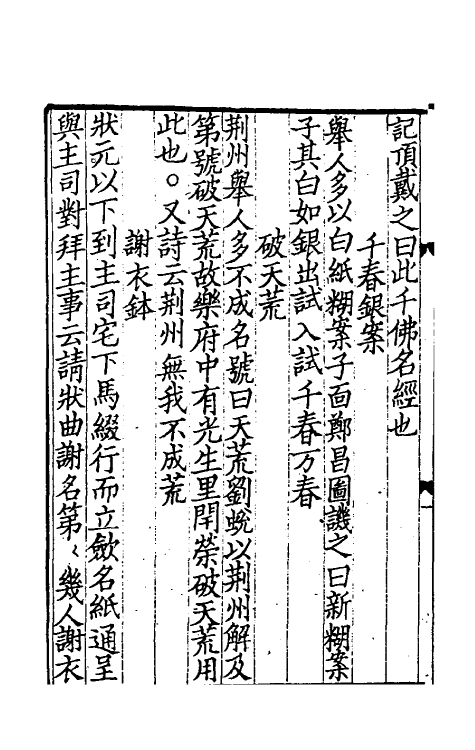 記頂戴之曰此千佛名經也
千春銀案
舉人多以白紙糊案子面鄭昌圖譏之曰新糊案
子其白如銀出試入試千春万春
破天荒
荆州舉人多不成名號曰天荒劉蛻以荆州解及
第號破天荒故樂府中有光生里閈榮破天荒用
此也。又詩云荆州無我不成荒
謝衣鉢
狀元以下到主司宅下馬綴行而立斂名紙通呈
與主司對拜主事云請狀曲謝名第、幾人謝衣